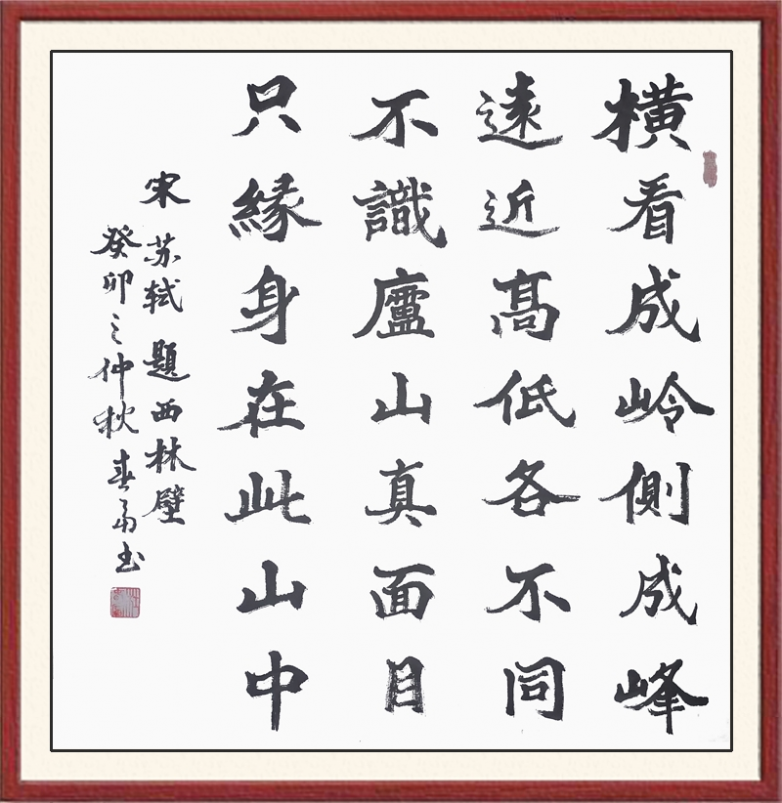 横看成岭側成峰
遠近髙低各不同
不識廬山真面目
只緣身在此山中
宋 苏轼 題西林壁
癸卯之仲秋春书